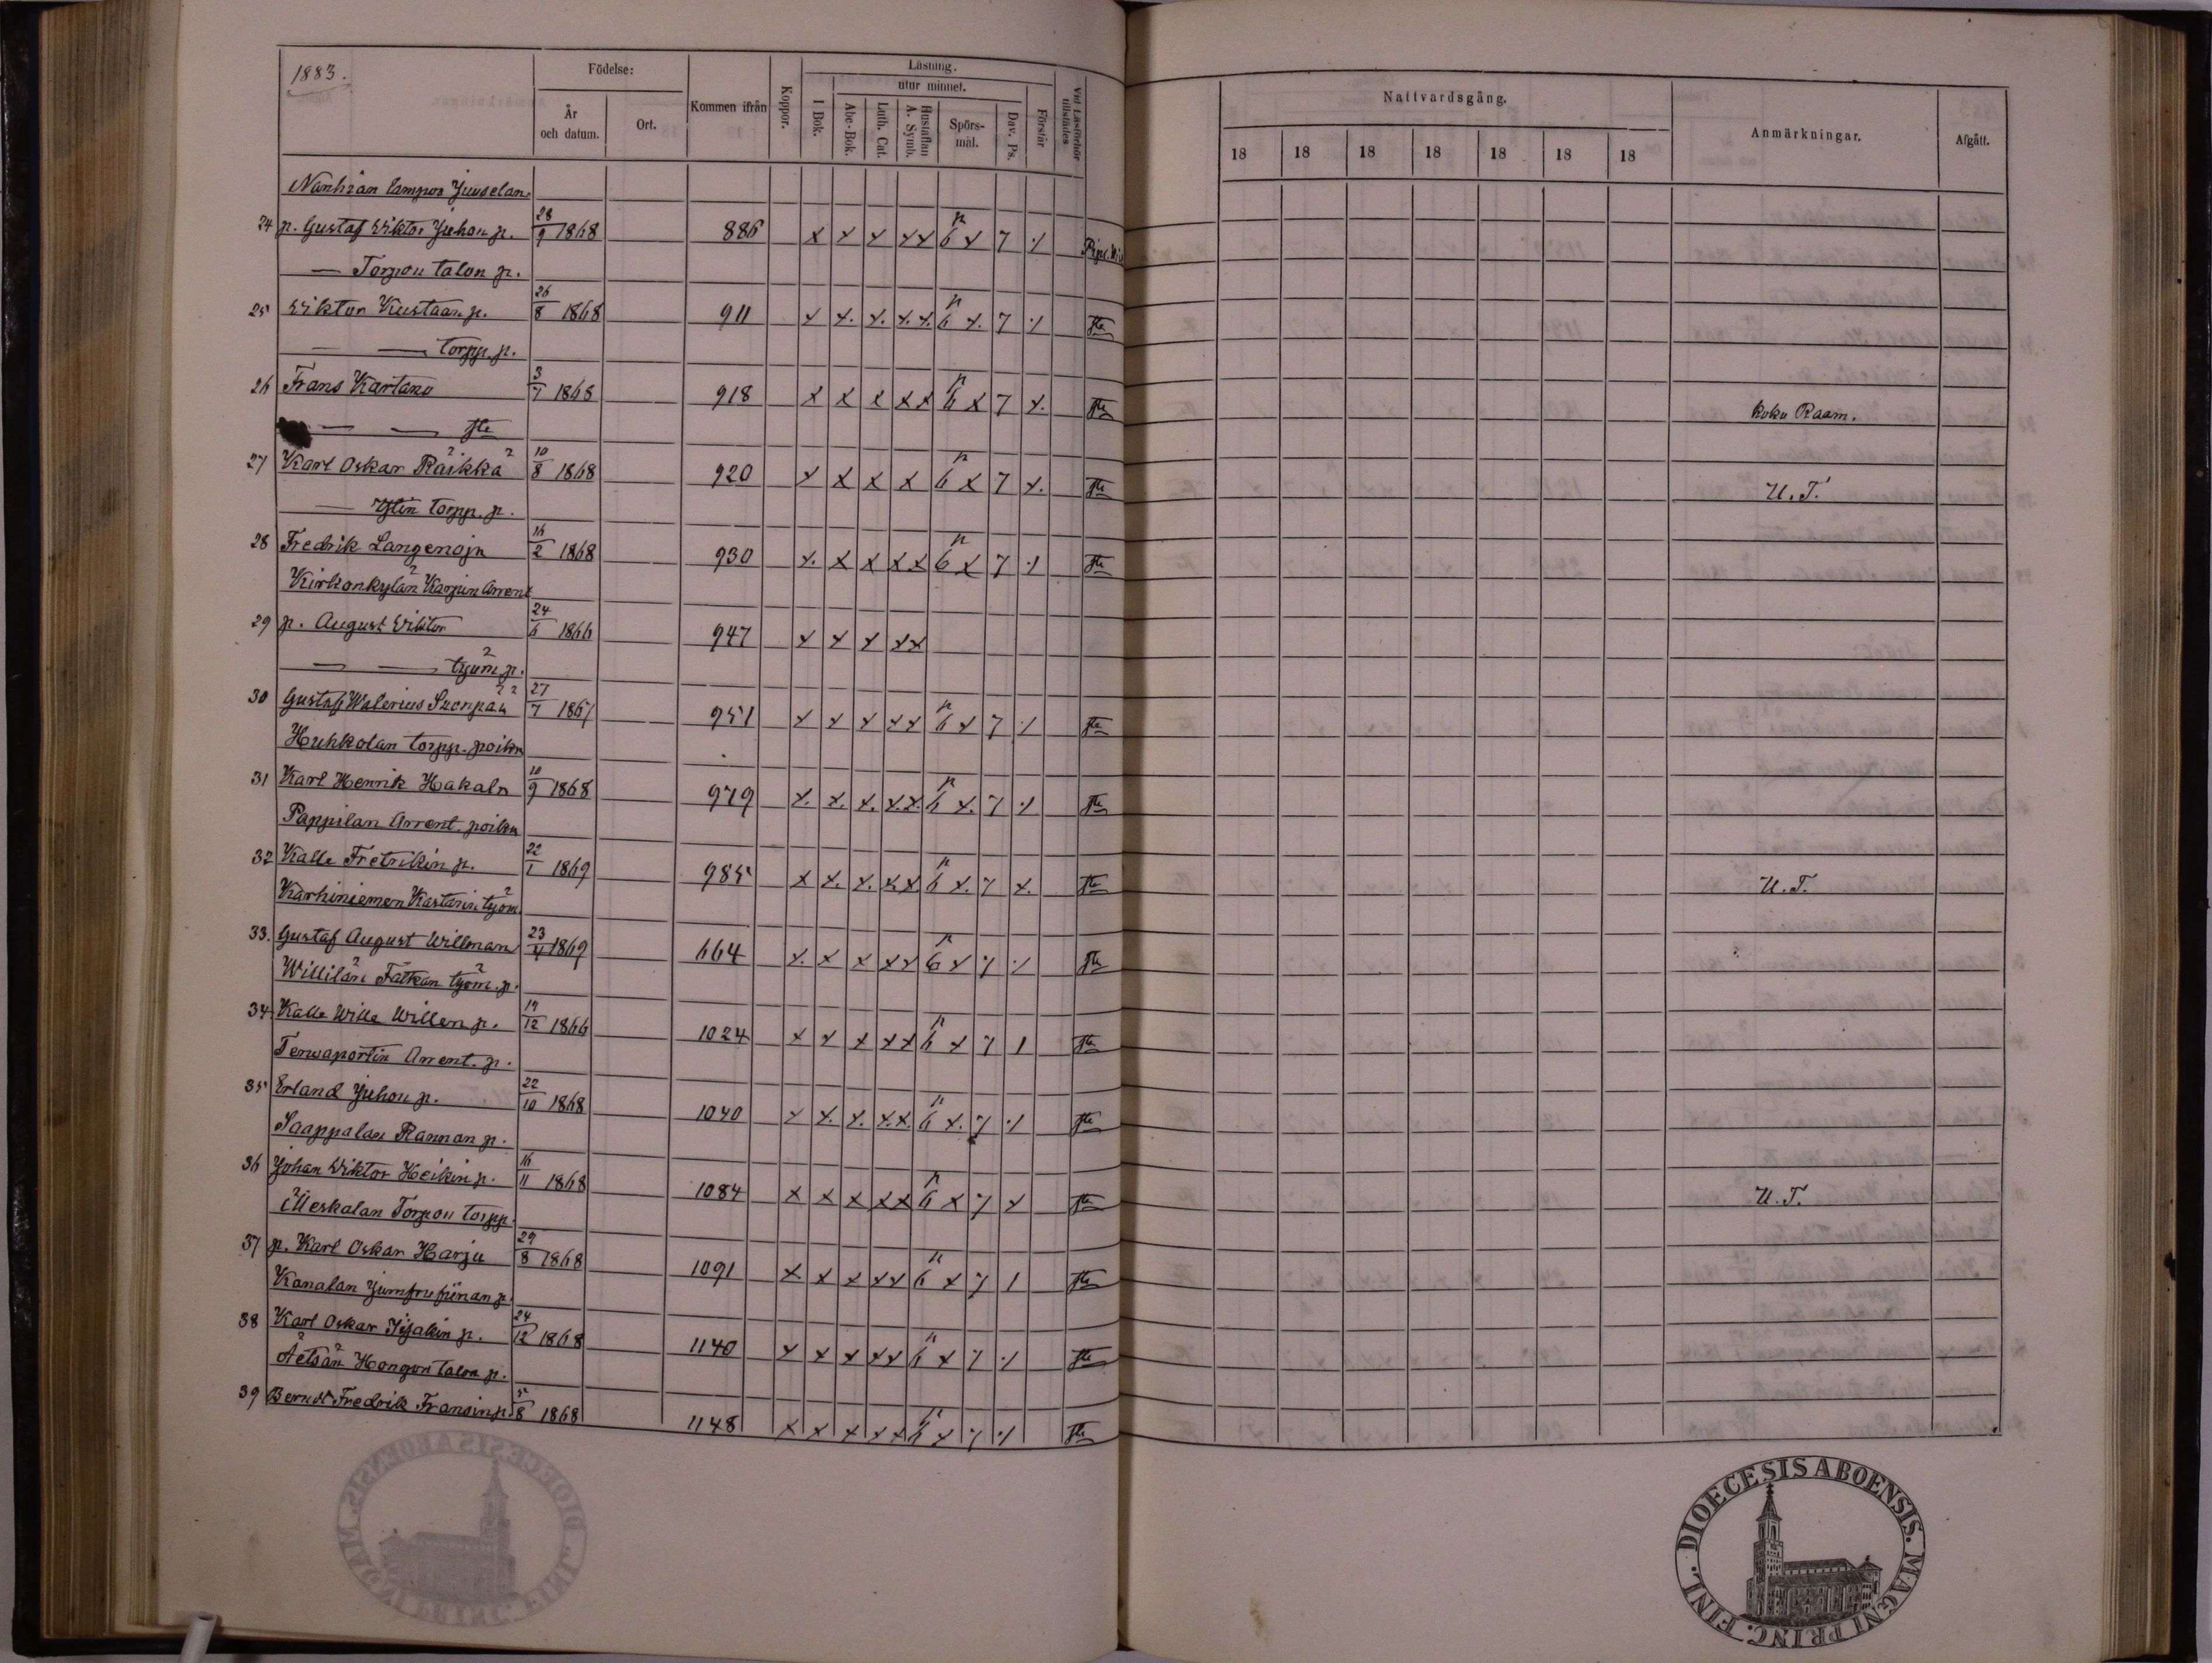 1883.
Födelse:
År
och datum.
Ort.
Kommen ifrån
Koppor.
Läsning.
I Bok.
utur minnet.
Abc-Bok.
Luth. Cat.
Hustaflan
A. Symb.
Spörs-
mål.
Dav. Ps.
Förstår
Vid Läsförhör
tillstädes
Nattvardsgång.
18 18 18 18 18 18 18
Anmärkningar.
Afgått.
24 p. Gustaf Wiktor Juhon p. 28/9 1868 886 x x x x x 6 x 7
— Torpou talon p.
25 Wiktor Kustaan p. 26/8 1868 911 x x. x. x. x. 6 x. 7
— — torpp. p.
26 Frans Kartano 3/7 1868 918 x x x x x 6 x 7 x.
koko Raam.
27 Karl Oskar Räikkä 10/8 1868 920 x x x x 6 x 7 x.
U. T.
torpp. p.
28 Fredrik Langenoja 16/2 1868 930 x. x x x x 6 x 7
Kirkonkylän Karjun Arrent
29 p. August Wiktor 24/6 1866 947 x x x x x
— — työm. p.
30 Gustaf Walerius 27/7 1867 951 x x x x x 6 x 7
Huhkolan torpp. poika
31 Karl Henrik Hakala 10/9 1868 979 x. x. x. x. x. 6 x. 7
Pappilan Arrent. poika
32 Kalle Fretrikin p. 22/1 1869 985 x x. x. x x 6 x. 7 x.
U. T.
Karhiniemen Kastarin työm.
33. Gustaf August Willman 23/4 1869 664 x. x x x x 6 x 7
Willilän työm. p.
34 Kalle Wille Willen p. 19/12 1866 1024 x x x x x 6 x 7
Terwaportin Arrent. p.
35 Erland Juhon p. 22/10 1868 1040 x x. x. x. x. 6 x. 7
Saappalan Rannan p.
36 Johan Wiktor Heikin p. 16/11 1868 1084 x x x x x 6 x 7 x
U. T.
Meskalan Torpou torpp.
37 p. Karl Oskar Harju 29/8 1868 1091 x x x x x 6 x 7
Kanalan p.
38 Karl Oskar Iisakin p. 24/12 1868 1140 x x x x x 6 x 7
Äetsän Hongon talon p.
39 Berndt Fredrik Fransin p. 5/8 1868 1148 x x x x x 6 x 7
DIOECESIS ABOENSIS. MAGNI PRINC. FINL.